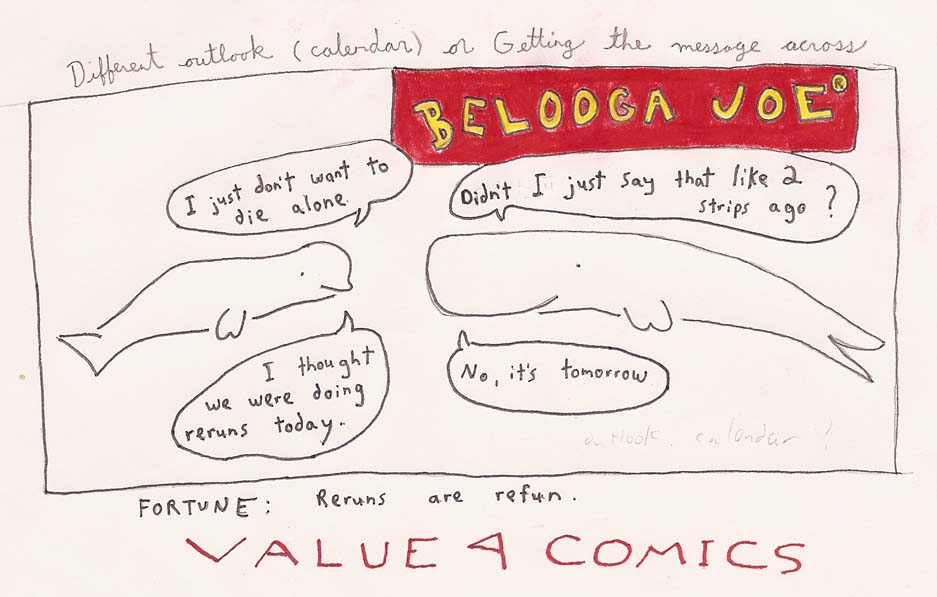 Different outlook (calendar) or Getting the message across
BELOOGA JOE®
I just don't want to
die alone.
Didn't I just say that like 2
strips ago?
I thought
we were doing
reruns today.
No, it's tomorrow
outlook calendar?
FORTUNE: Reruns are refun.
VALUE 4 COMICS